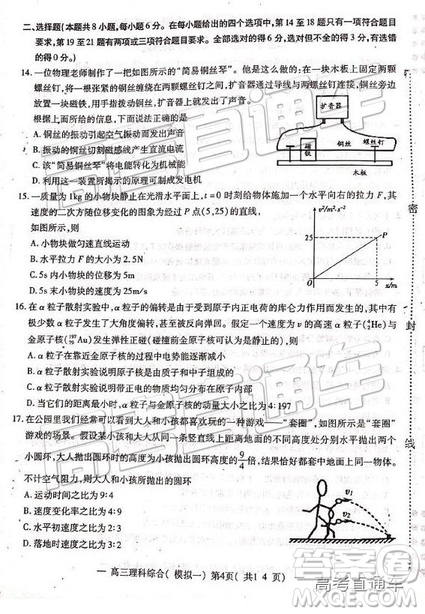 二、选择题(本题共8小题,每小题6分。在每小题给出的四个选项中,第14至18题只有一项符合题目要
求,第19至21题有两项或三项符合题目要求。全部选对的得6分,选对但不全的得3分,有选错
的得0分。)
14. 一位物理老师制作了一把如图所示的“简易钢丝琴”。他是这么做的:在一块木板上固定两颗
螺丝钉,将一根张紧的钢丝缠绕在两颗螺丝钉之间,扩音器通过导线与两颗螺丝钉连接,钢丝旁边
放置一块磁铁,用手指拨动钢丝,扩音器上就发出了声音。
根据上面所给的信息,下面说法正确的是
A. 钢丝的振动引起空气振动而发出声音
B. 振动的钢丝切割磁感线产生直流电流
C. 该“简易钢丝琴”将电能转化为机械能
D. 利用这一装置所揭示的原理可制成发电机
扩音器
磁铁
钢丝
螺丝钉
木板
15. 一质量为1kg的小物块静止在光滑水平面上,t=0时刻给物体施加一个水平向右的拉力F,其
速度的二次方随位移变化的图象为经过P点(5,25)的直线,
如图所示,则
A. 小物块做匀速直线运动
B. 水平拉力F的大小为2.5N
C. 5s内小物块的位移为5m
D. 5s末小物块的速度为25m/s
v²/m²·s⁻²
25
P
0
5
x/m
16. 在α粒子散射实验中,α粒子的偏转是由于受到原子内正电荷的库仑力作用而发生的,其中有
极少数α粒子发生了大角度偏转,甚至被反向弹回。假定一个速度为v的高速α粒子(⁴₂He)与
金原子核(¹⁹⁷₇₉Au)发生弹性正碰(碰撞前金原子核可认为静止),则
A. α粒子在靠近金原子核的过程中电势能逐渐减小
B. α粒子散射实验说明原子核是由质子和中子组成的
C. α粒子散射实验说明带正电的物质均匀分布在原子内部
D. 碰撞过程中,α粒子与金原子核的动量大小之比为4:197
17. 在公园里我们经常可以看到大人和小孩都喜欢玩的一种游戏——“套圈”,如图所示是“套圈”
游戏的场景。假设某小孩和大人从同一条竖直线上距离地面的不同高度处分别水平抛出两个
小圆环,大人抛出圆环时的高度为小孩抛出圆环高度的9/4倍,结果恰好都套中地面上同一物体。
不计空气阻力,则大人和小孩所抛出的圆环
A. 运动时间之比为9:4
B. 速度变化率之比为4:9
C. 水平初速度之比为2:3
D. 落地时速度之比为3:2
v₁
v₂
密
封
线
高三理科综合(模拟一)第4页(共14页)
高考直通车
答案圈
高考直通车